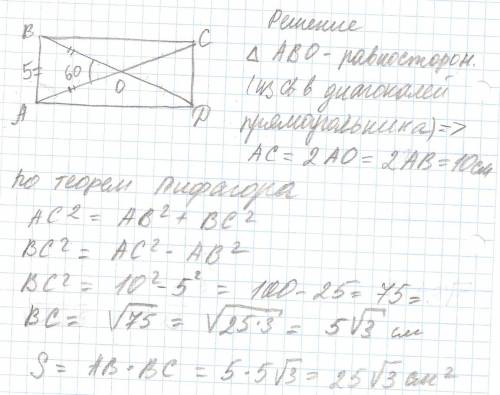 Решение
B
C
5
60
O
A
D
Δ ABO - равносторон.
(из св в диагоналей
прямоугольника) =>
AC = 2AO = 2AB = 10 см
по теорем Пифагора
AC² = AB² + BC²
BC² = AC² - AB²
BC² = 10² - 5² = 100 - 25 = 75 =
BC = √75 = √25·3 = 5√3 см
S = AB · BC = 5 · 5√3 = 25√3 см²